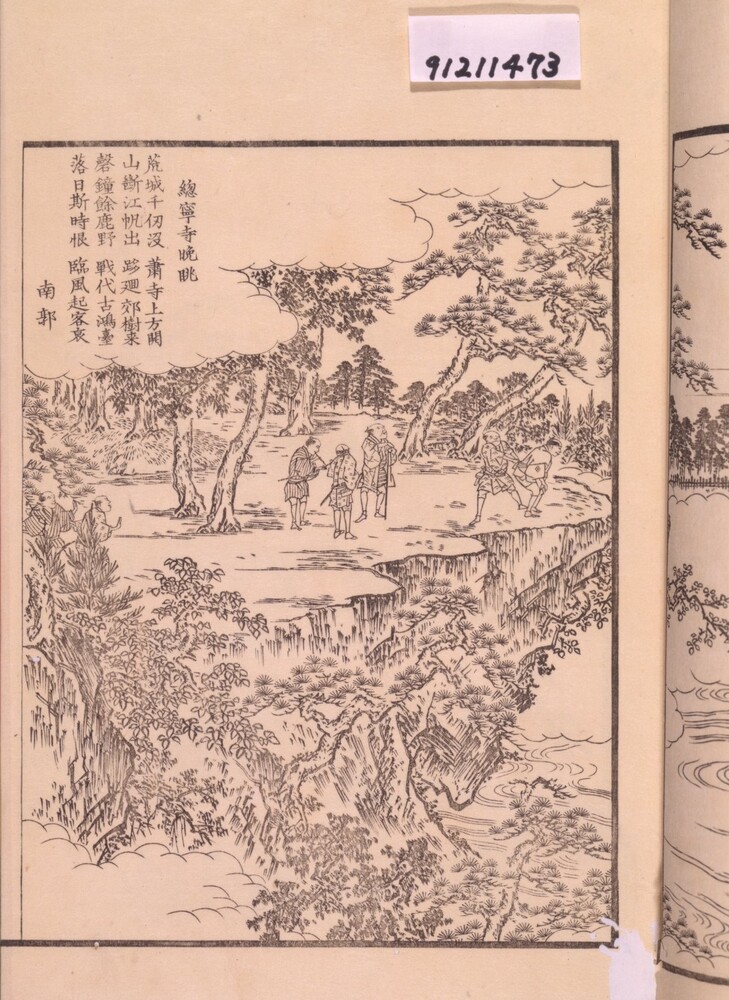 91211473
總寧寺晩眺
荒城千仞没 蕭寺上方開
山斷江帆出 路廻郊樹来
磬鐘餘鹿野 戰代古鴻臺
落日斯時恨 臨風起客哀
南郭